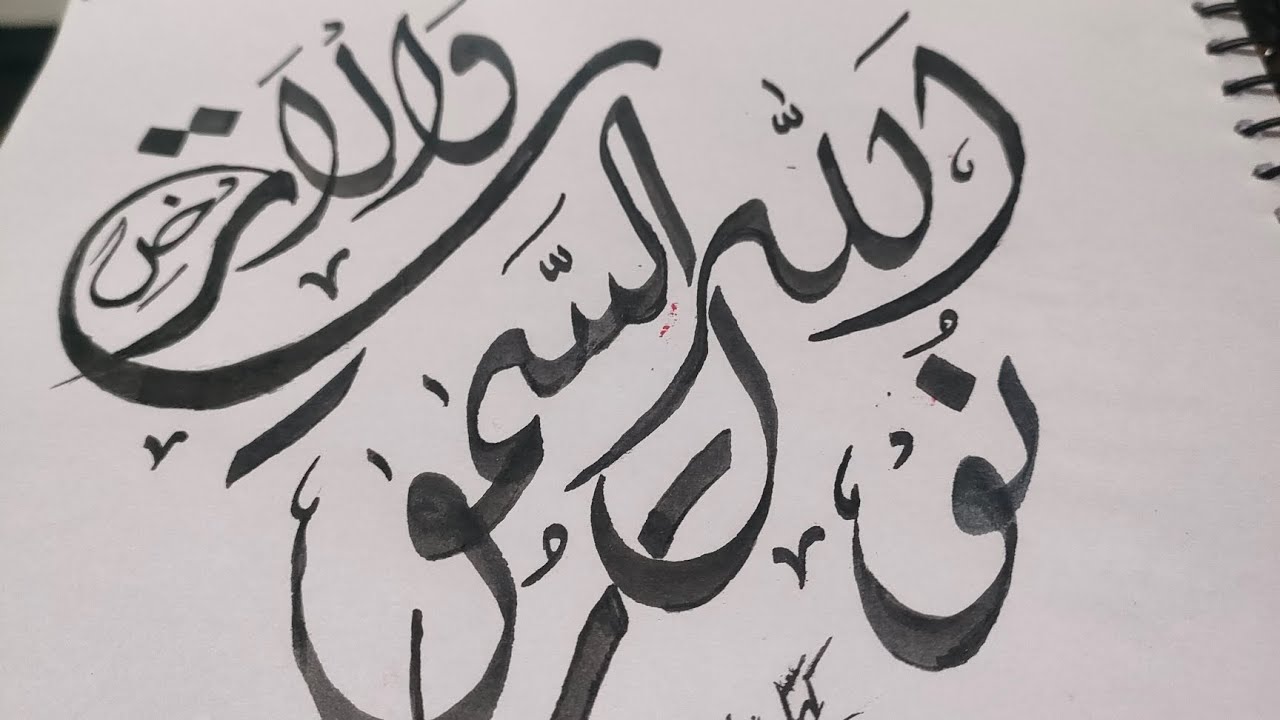 اللَّه نُورُ السَّمٰوٰت وَالأَرضِ